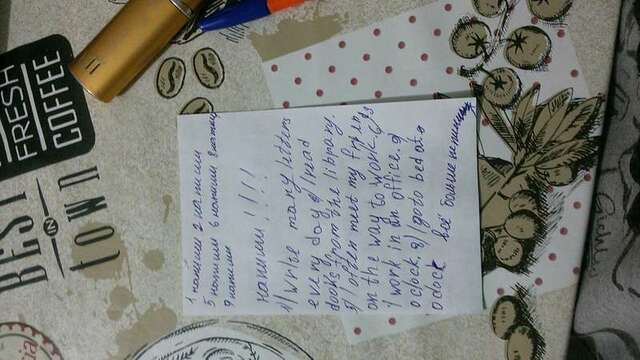 BEST
IN
town
FRESH
COFFEE
1 напиши 2 напиши
5 напиши 6 напиши 8 напиши
9 напиши
напиши !!!!
I write many letters
every day I read
books from the library.
5) I often meet my friends
on the way to work. 6)
I work in an office. 9)
oclock, 8) I go to bed at 9
oclock всё больше не пиши